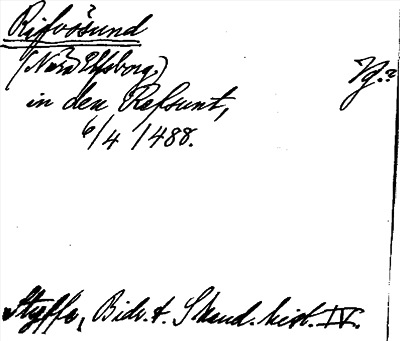 Rifvösund
(Nära Elfsborg.) Vg.?
in den Refsunt,
6/4 1488.
Styffe, Bidr. t. Skand. hist. IV.